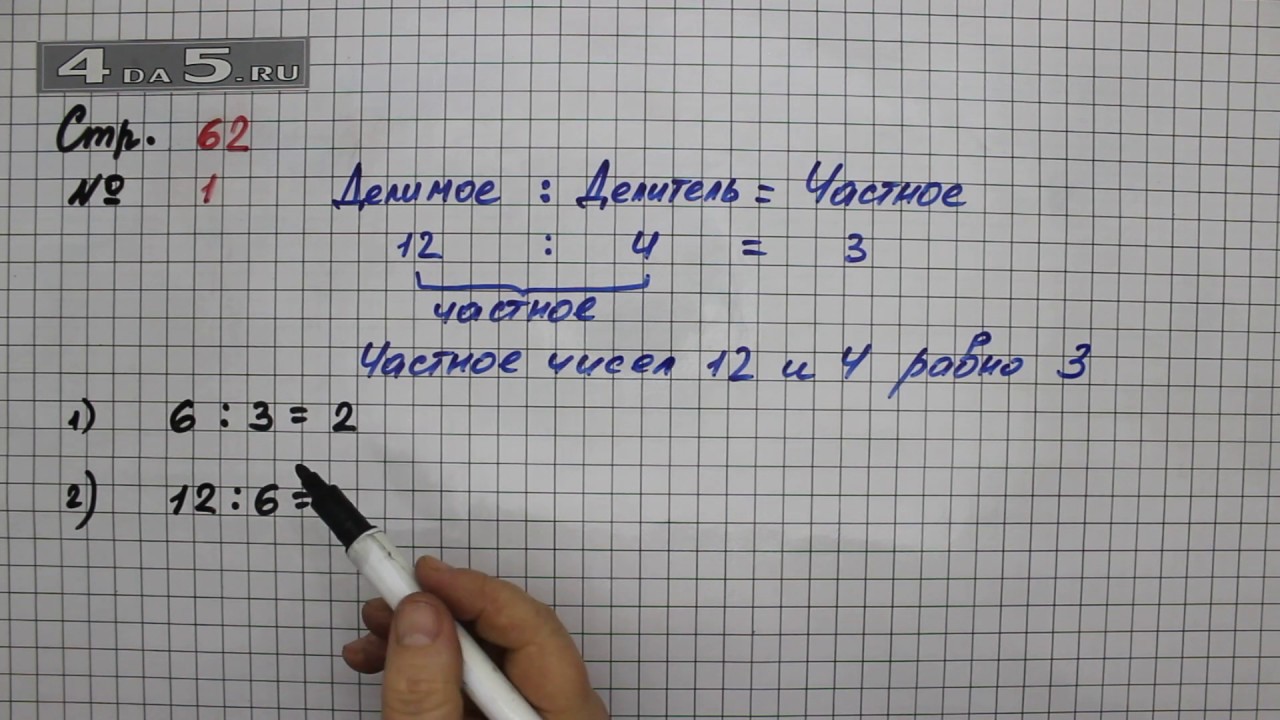 4 DA 5.RU
Стр. 62
№ 1
Делимое : Делитель = Частное
12 : 4 = 3
частное
Частное чисел 12 и 4 равно 3
1) 6 : 3 = 2
2) 12 : 6 =